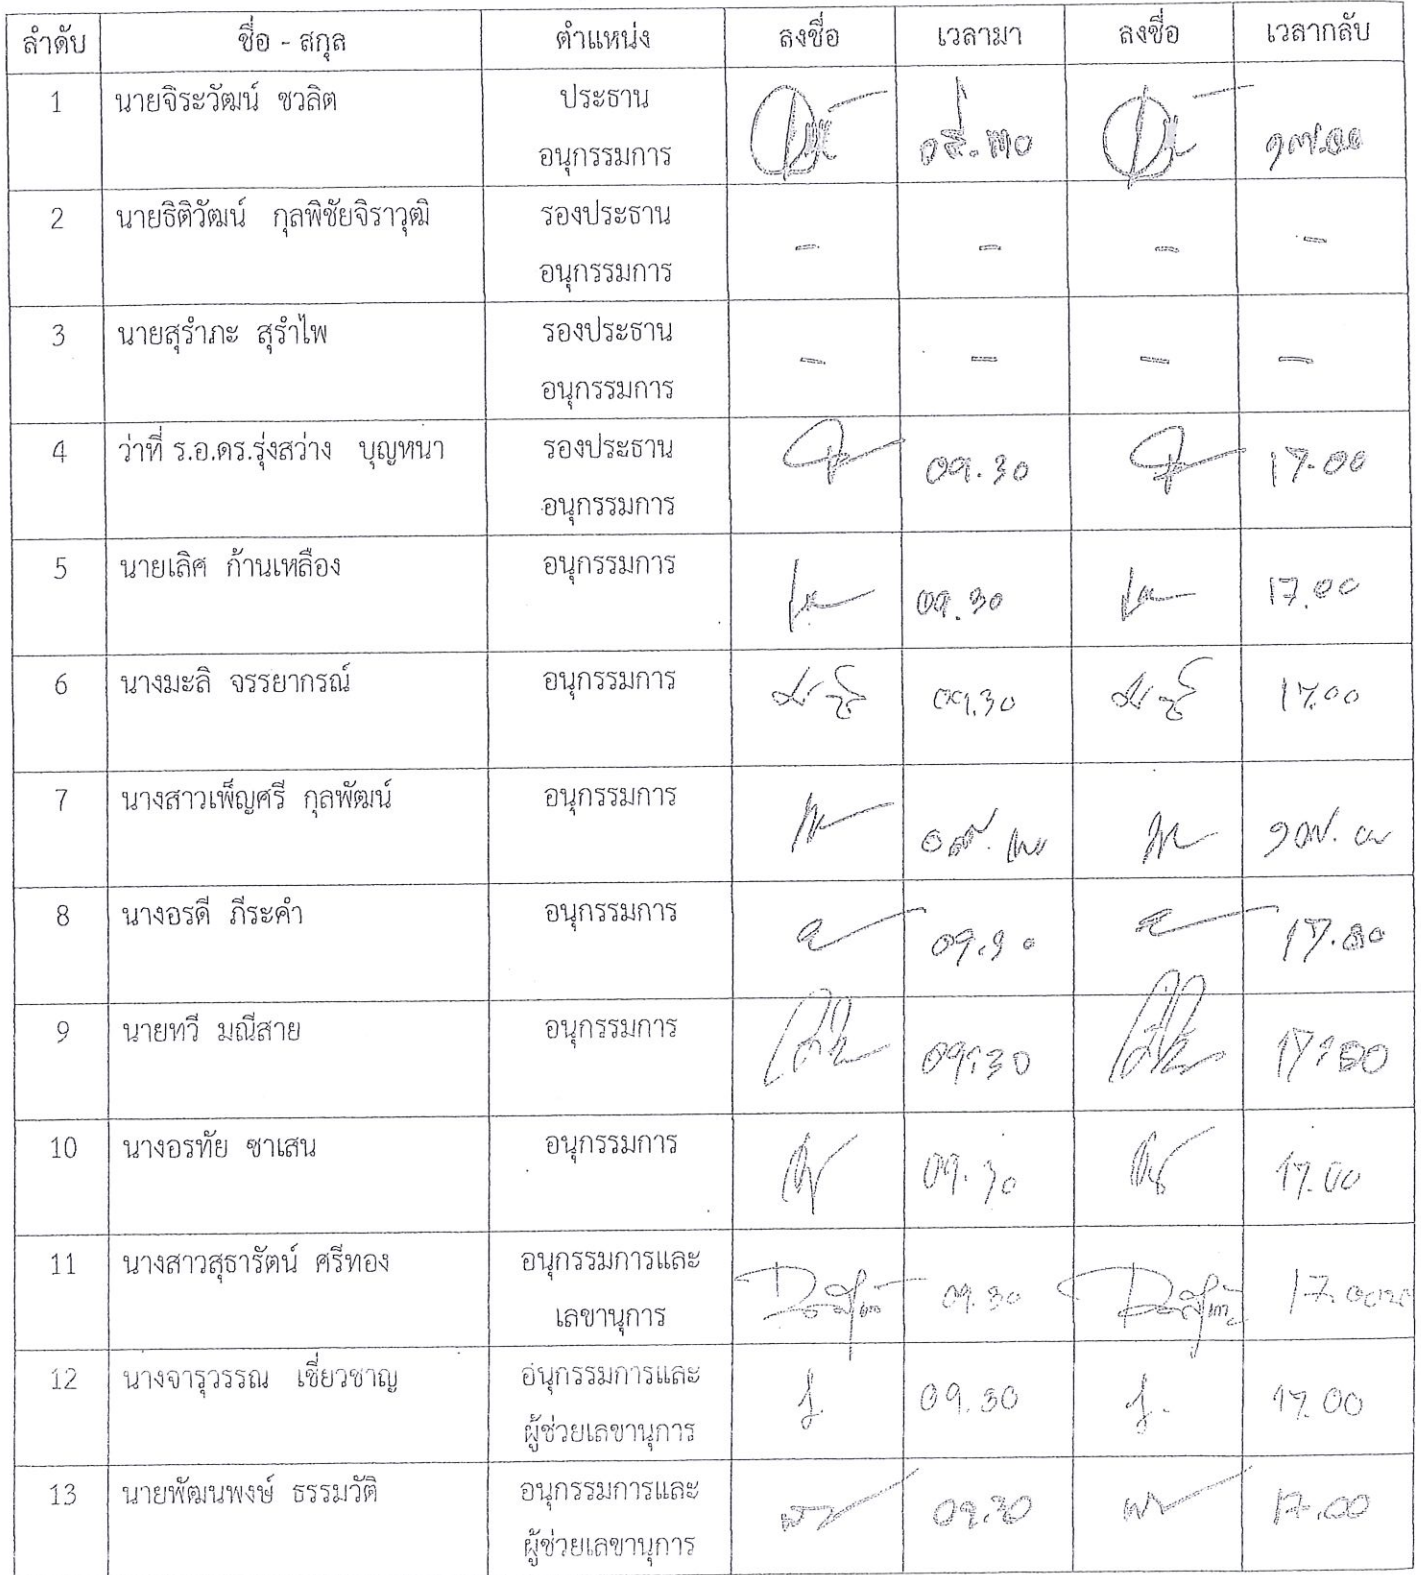 ลำดับ ชื่อ - สกุล ตำแหน่ง ลงชื่อ เวลามา ลงชื่อ เวลากลับ
1 นายจิระวัฒน์ ชวลิต ประธาน
อนุกรรมการ ๐๙.๓๐ ๑๗.๐๐
2 นายธิติวัฒน์ กุลพิชัยจิราวุฒิ รองประธาน
อนุกรรมการ - - - -
3 นายสุรำภะ สุรำไพ รองประธาน
อนุกรรมการ - - - -
4 ว่าที่ ร.อ.ดร.รุ่งสว่าง บุญหนา รองประธาน
อนุกรรมการ 09.30 17.00
5 นายเลิศ ก้านเหลือง อนุกรรมการ
09.30 17.00
6 นางมะลิ จรรยากรณ์ อนุกรรมการ
09.30 17.00
7 นางสาวเพ็ญศรี กุลพัฒน์ อนุกรรมการ
8 นางอรดี ภีระคำ อนุกรรมการ
09.30 17.00
9 นายทวี มณีสาย อนุกรรมการ
09:30 17:00
10 นางอรทัย ซาเสน อนุกรรมการ
09.30 17.00
11 นางสาวสุธารัตน์ ศรีทอง อนุกรรมการและ
เลขานุการ 09.30
12 นางจารุวรรณ เชี่ยวชาญ อนุกรรมการและ
ผู้ช่วยเลขานุการ 09.30 17.00
13 นายพัฒนพงษ์ ธรรมวัติ อนุกรรมการและ
ผู้ช่วยเลขานุการ 09.30 17.00